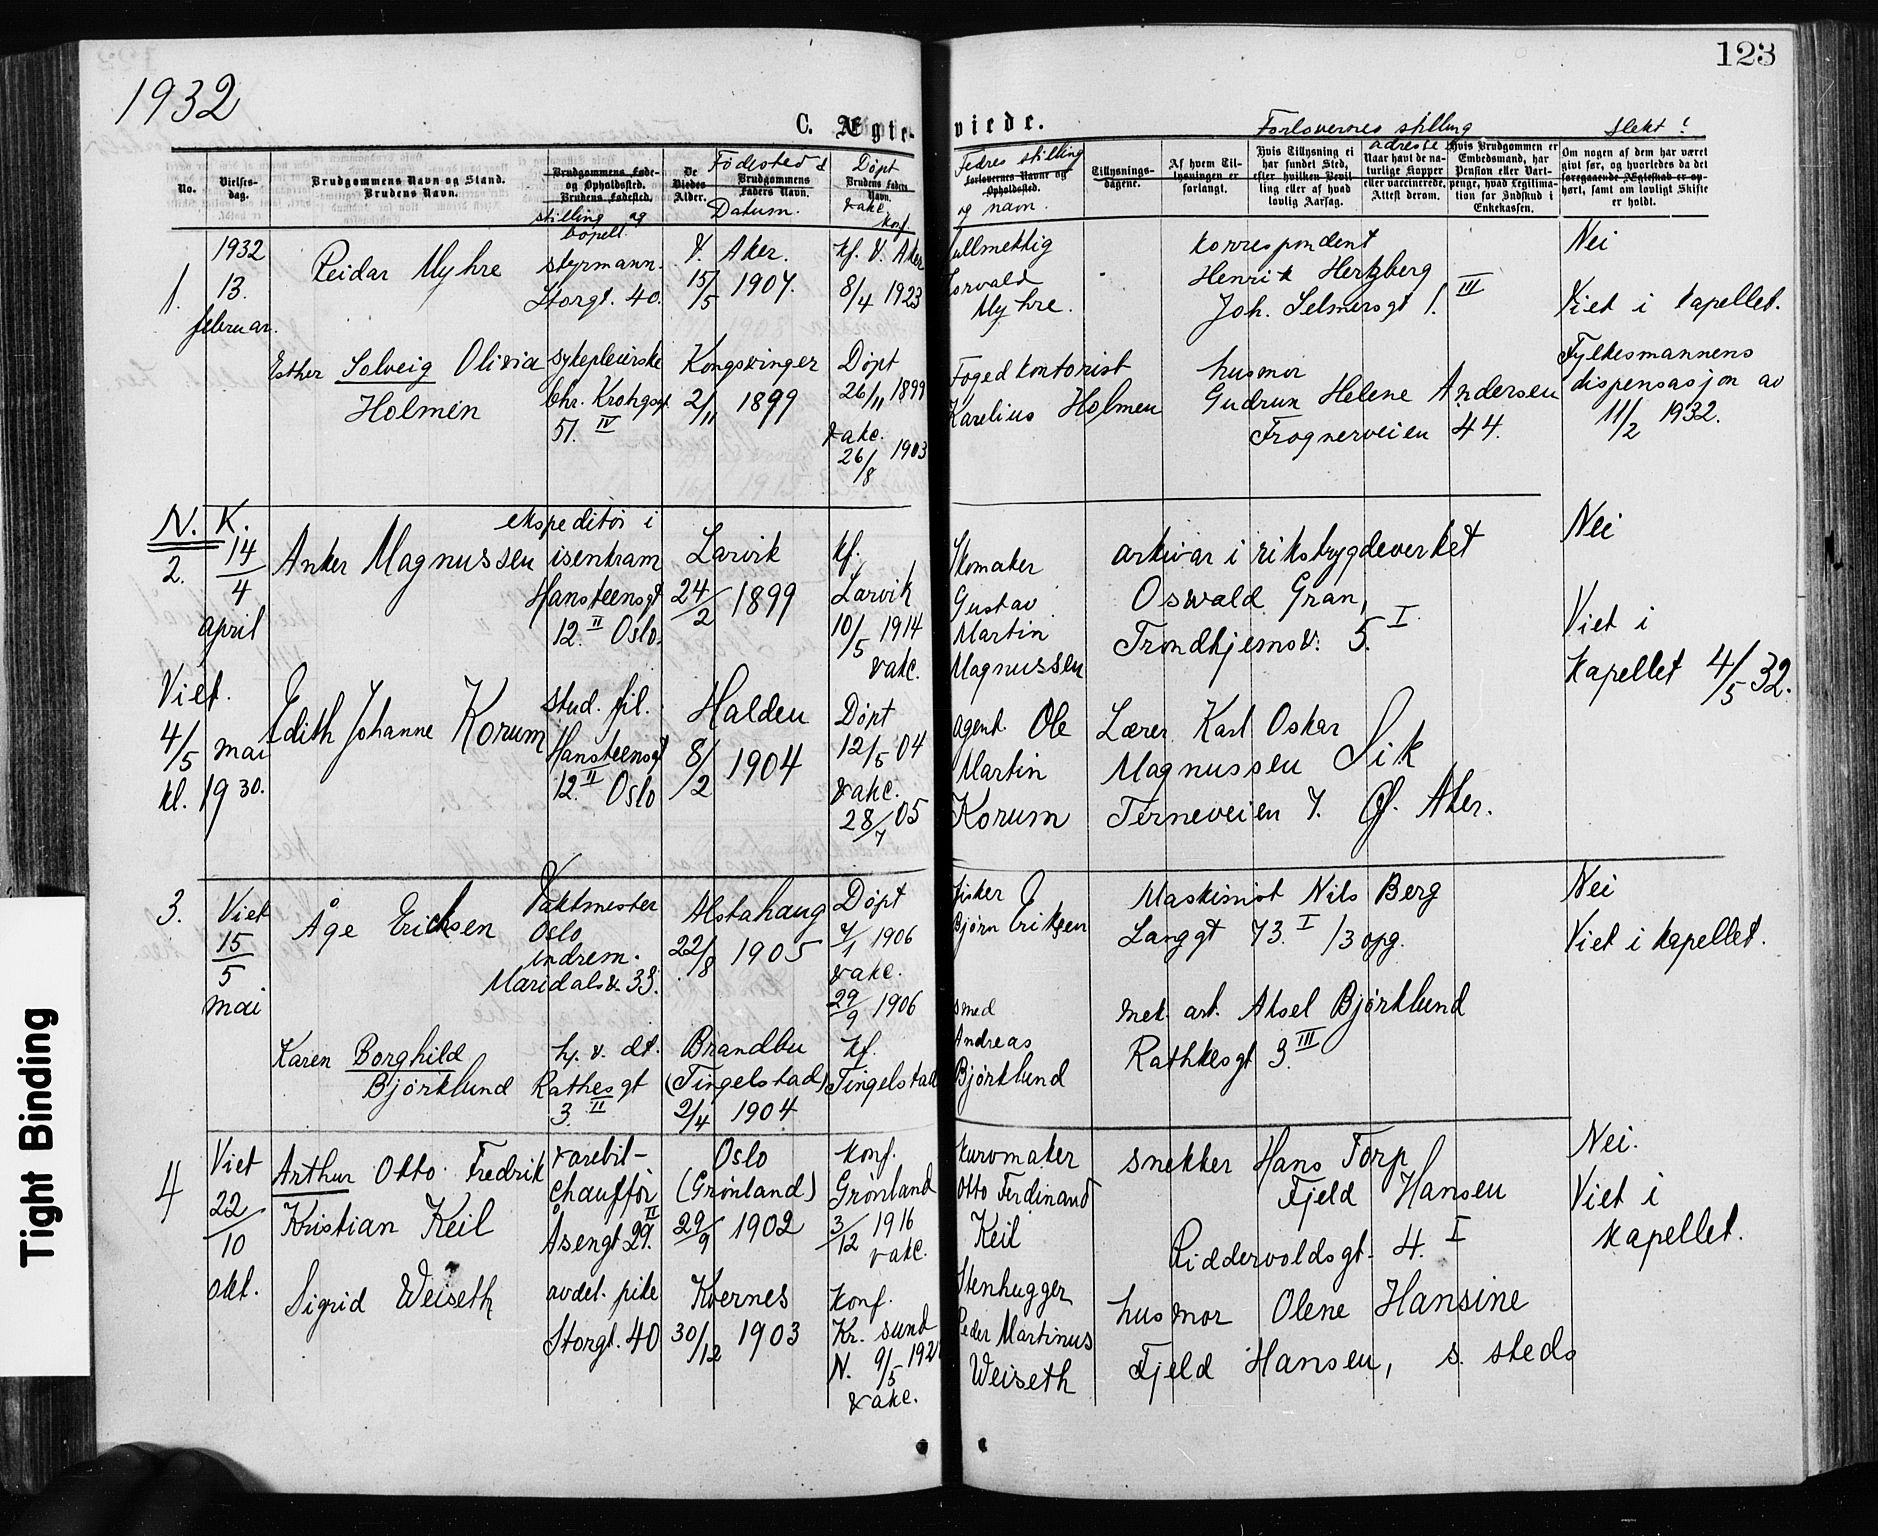 123
1932
C. Ægte-
viede.
Forlovernes stilling
adresse
Slekt?
No.
Vielses-
dag.
Brudgommens Navn og Stand.
Brudens Navn.
Brudgommens Føde-
og Opholdssted.
Brudens Fødested.
stilling og
bopell.
De
Viedes
Alder.
Fødested &
Brudgommens
Faders Navn.
Datum.
Døpt
Brudens Faders
Navn.
vakc.
konf.
Fedres stilling
Forlovernes Navne og
Opholdssted.
og navn.
Tillysnings-
dagene.
Af hvem Til-
lysningen er
forlangt.
Hvis Tillysning ei
har fundet Sted,
efter hvilken Bevil-
ling eller af hvad
lovlig Aarsag.
Naar havt de na-
turlige Kopper
eller vaccinerede.
Attest derom.
Hvis Brudgommen er
Embedsmand, har
Pension eller Vart-
penge, hvad Legitima-
tion for Indskud i
Enkekassen.
Om nogen af dem har været
givt før, og hvorledes da det
foregaaende Ægteskab er op-
hørt, samt om lovligt Skifte
er holdt.
1.
1932
13.
februar.
Reidar Myhre
styrmann.
Storgt. 40.
V. Aker.
15/5 1907.
kf. V. Aker
8/4 1923
fullmektig
Torvald
Myhre.
korrespondent
Henrik Hertzberg
Joh. Selmersgt 1. III
Nei
Viet i kapellet.
Esther Solveig Olivia
Holmen
sykepleierske
Chr. Krohgsgt
51. IV
Kongsvinger
2/11 1899
Døpt
26/11 1899
vakc.
26/8 1903
Foged kontorist
Karelius Holmen
husmor
Gudrun Helene Andersen
Frognerveien 44.
Fylkesmannens
dispensasjon av
11/2 1932.
N. K.
2.
14/4
april
Anker Magnussen
ekspeditør i
isenkram
Hansteensgt
12. II Oslo.
Larvik
24/2 1899
kf.
Larvik
10/5 1914
vakc.
Skomaker
Gustav
Martin
Magnussen
arkivar i rikstrygdeverket
Oswald Gran,
Trondhjemsv. 5. I
Nei
Viet i
kapellet 4/5 32.
Viet.
4/5 mai
kl. 19 30.
Edith Johanne Korum
stud. fil.
Hansteensgt
12. II Oslo
Halden
8/2 1904
Døpt
12/5 04
vakc.
28/7 05
agent Ole
Martin
Korum
Lærer Karl Oskar
Magnussen Sik
Terneveien 7. Ø. Aker.
3.
Viet
15/5
mai
Åge Ericksen
Vaktmester
Oslo
indrem.
Maridalsv. 33.
Alstahaug
22/8 1905
Døpt
7/1 1906
vakc.
29/9 1906
fisker
Bjørn Eriksen
Maskinist Nils Berg
Langgt 73. I /3 opg.
Nei
Viet i kapellet.
Karen Borghild
Bjørklund
hj. v. dt.
Rathesgt
3. II
Brandbu
(Tingelstad)
2/4 1904
kf.
Tingelstad
smed
Andreas
Bjørklund
mek. arb. Aksel Bjørklund
Rathkesgt 3. III
4
Viet
22/10
okt.
Arthur Otto Fredrik
Kristian Keil
varebil-
chauffør
Åsengt 29. II
Oslo
(Grønland)
29/9 1902
konf.
Grønland
3/12 1916
vakc.
kurvmaker
Otto Ferdinand
Keil
snekker Hans Torp
Fjeld Hansen
Riddervoldsgt. 4. I
Nei.
Viet i
kapellet.
Sigrid Weiseth
avdel. pike
Storgt. 40
Kvernes
30/12 1903
Konf.
Kr. sund
N. 9/5
vakc.
Stenhugger
Peder Martinus
Weiseth
husmor Olene Hansine
Fjeld Hansen, s. steds
Tight Binding